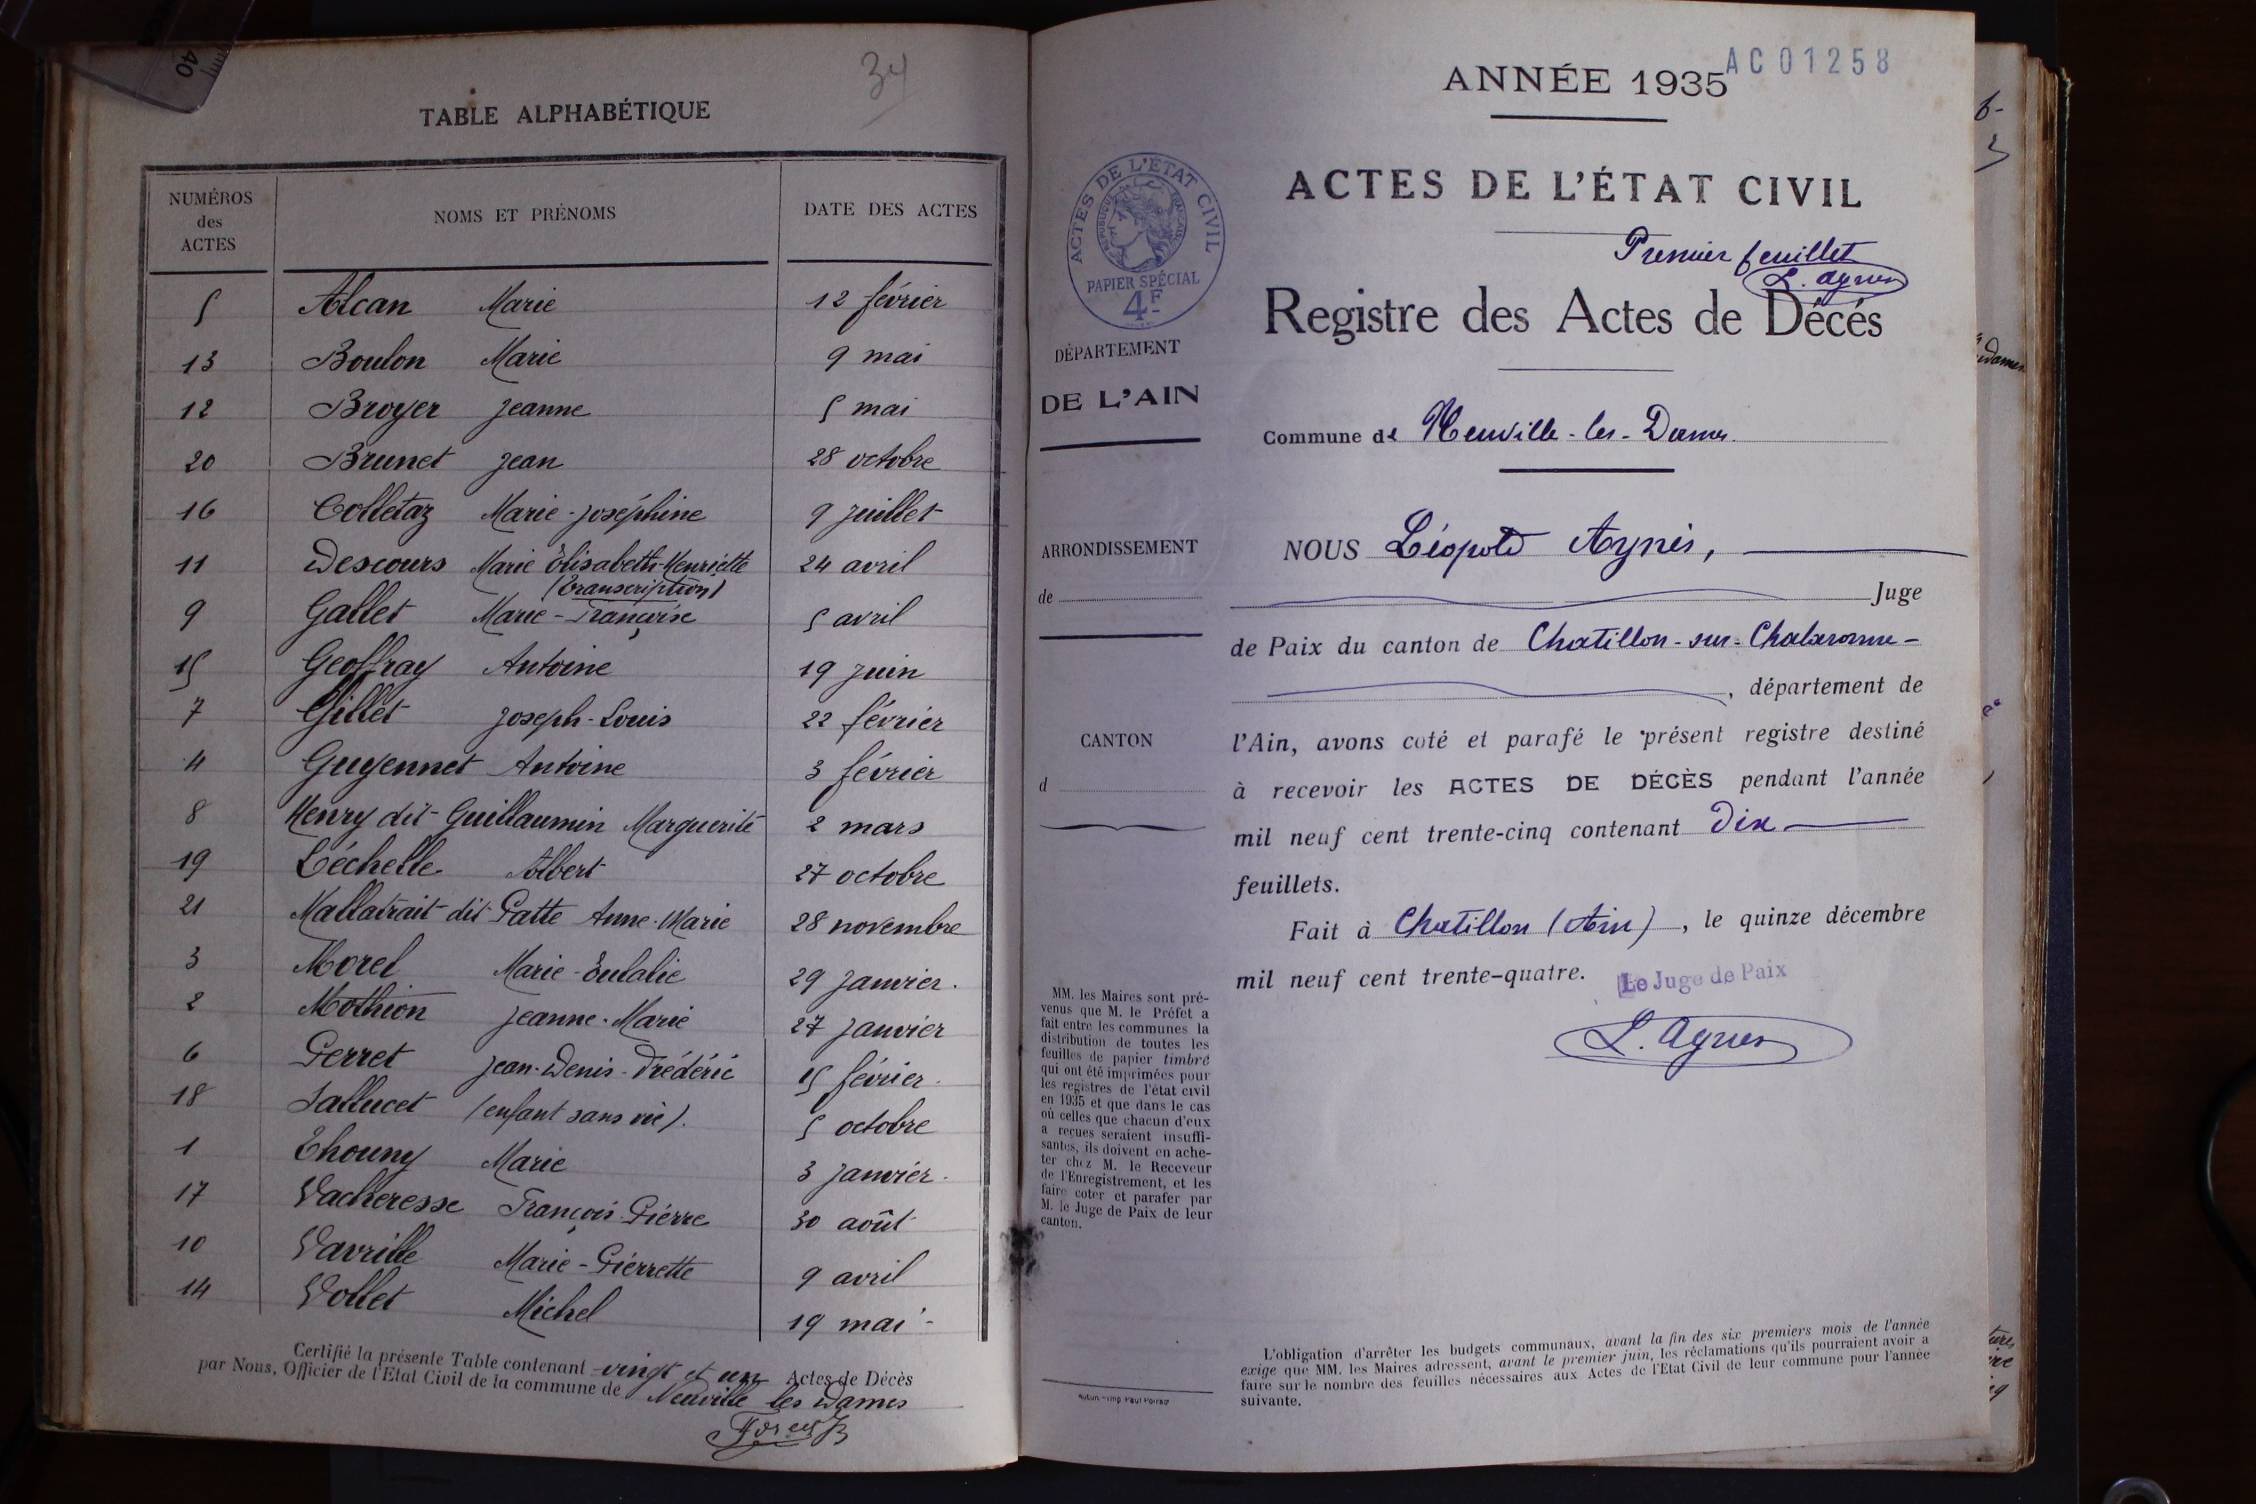 40
34
TABLE ALPHABÉTIQUE
NUMÉROS des ACTES NOMS ET PRÉNOMS DATE DES ACTES
5 Alcan Marie 12 février
13 Boulon Marie 9 mai
12 Broyer Jeanne 5 mai
20 Brunet Jean 28 octobre
16 Colletaz Marie-Joséphine 9 juillet
11 Descours Marie Élisabeth-Henriette 24 avril
(transcription)
9 Gallet Marie-Françoise 5 avril
15 Geoffray Antoine 19 juin
7 Gillet Joseph-Louis 22 février
4 Guyennet Antoine 3 février
8 Henry dit-Guillaumin Marguerite 2 mars
19 Léchelle Albert 27 octobre
21 Mallatrait-dit-Patte Anne-Marie 28 novembre
3 Morel Marie-Eulalie 29 janvier.
2 Mothion Jeanne-Marie 27 janvier
6 Perret Jean-Denis-Frédéric 15 février.
18 Sallucet (enfant sans vie). 5 octobre
1 Thouny Marie 3 janvier.
17 Vacheresse François-Pierre 30 août
10 Vavrille Marie-Pierrette 9 avril
14 Vollet Michel 19 mai-
Certifié la présente Table contenant vingt et un Actes de Décès
par Nous, Officier de l'Etat Civil de la commune de Neuville les Dames
AC01258
ANNÉE 1935
ACTES DE L'ÉTAT CIVIL
Premier feuillet
L. Aynès
Registre des Actes de Décès
ACTES DE L'ÉTAT CIVIL
RÉPUBLIQUE FRANÇAISE
PAPIER SPÉCIAL
4F
DÉPARTEMENT
DE L'AIN
ARRONDISSEMENT
de
CANTON
d
MM. les Maires sont pré-
venus que M. le Préfet a
fait entre les communes la
distribution de toutes les
feuilles de papier timbré
qui ont été imprimées pour
les registres de l'état civil
en 1935 et que dans le cas
où celles que chacun d'eux
a reçues seraient insuffi-
santes, ils doivent en ache-
ter chez M. le Receveur
de l'Enregistrement, et les
faire coter et parafer par
M. le Juge de Paix de leur
canton.
Autun - Imp. Paul Poirson
Commune de Neuville-les-Dames
NOUS Léopold Aynès,
Juge
de Paix du canton de Chatillon-sur-Chalaronne-
, département de
l'Ain, avons coté et parafé le présent registre destiné
à recevoir les ACTES DE DÉCÈS pendant l'année
mil neuf cent trente-cinq contenant Dix
feuillets.
Fait à Chatillon (Ain), le quinze décembre
mil neuf cent trente-quatre.
Le Juge de Paix
L. Aynès
L'obligation d'arrêter les budgets communaux, avant la fin des six premiers mois de l'année
exige que MM. les Maires adressent, avant le premier juin, les réclamations qu'ils pourraient avoir a
faire sur le nombre des feuilles nécessaires aux Actes de l'Etat Civil de leur commune pour l'année
suivante.